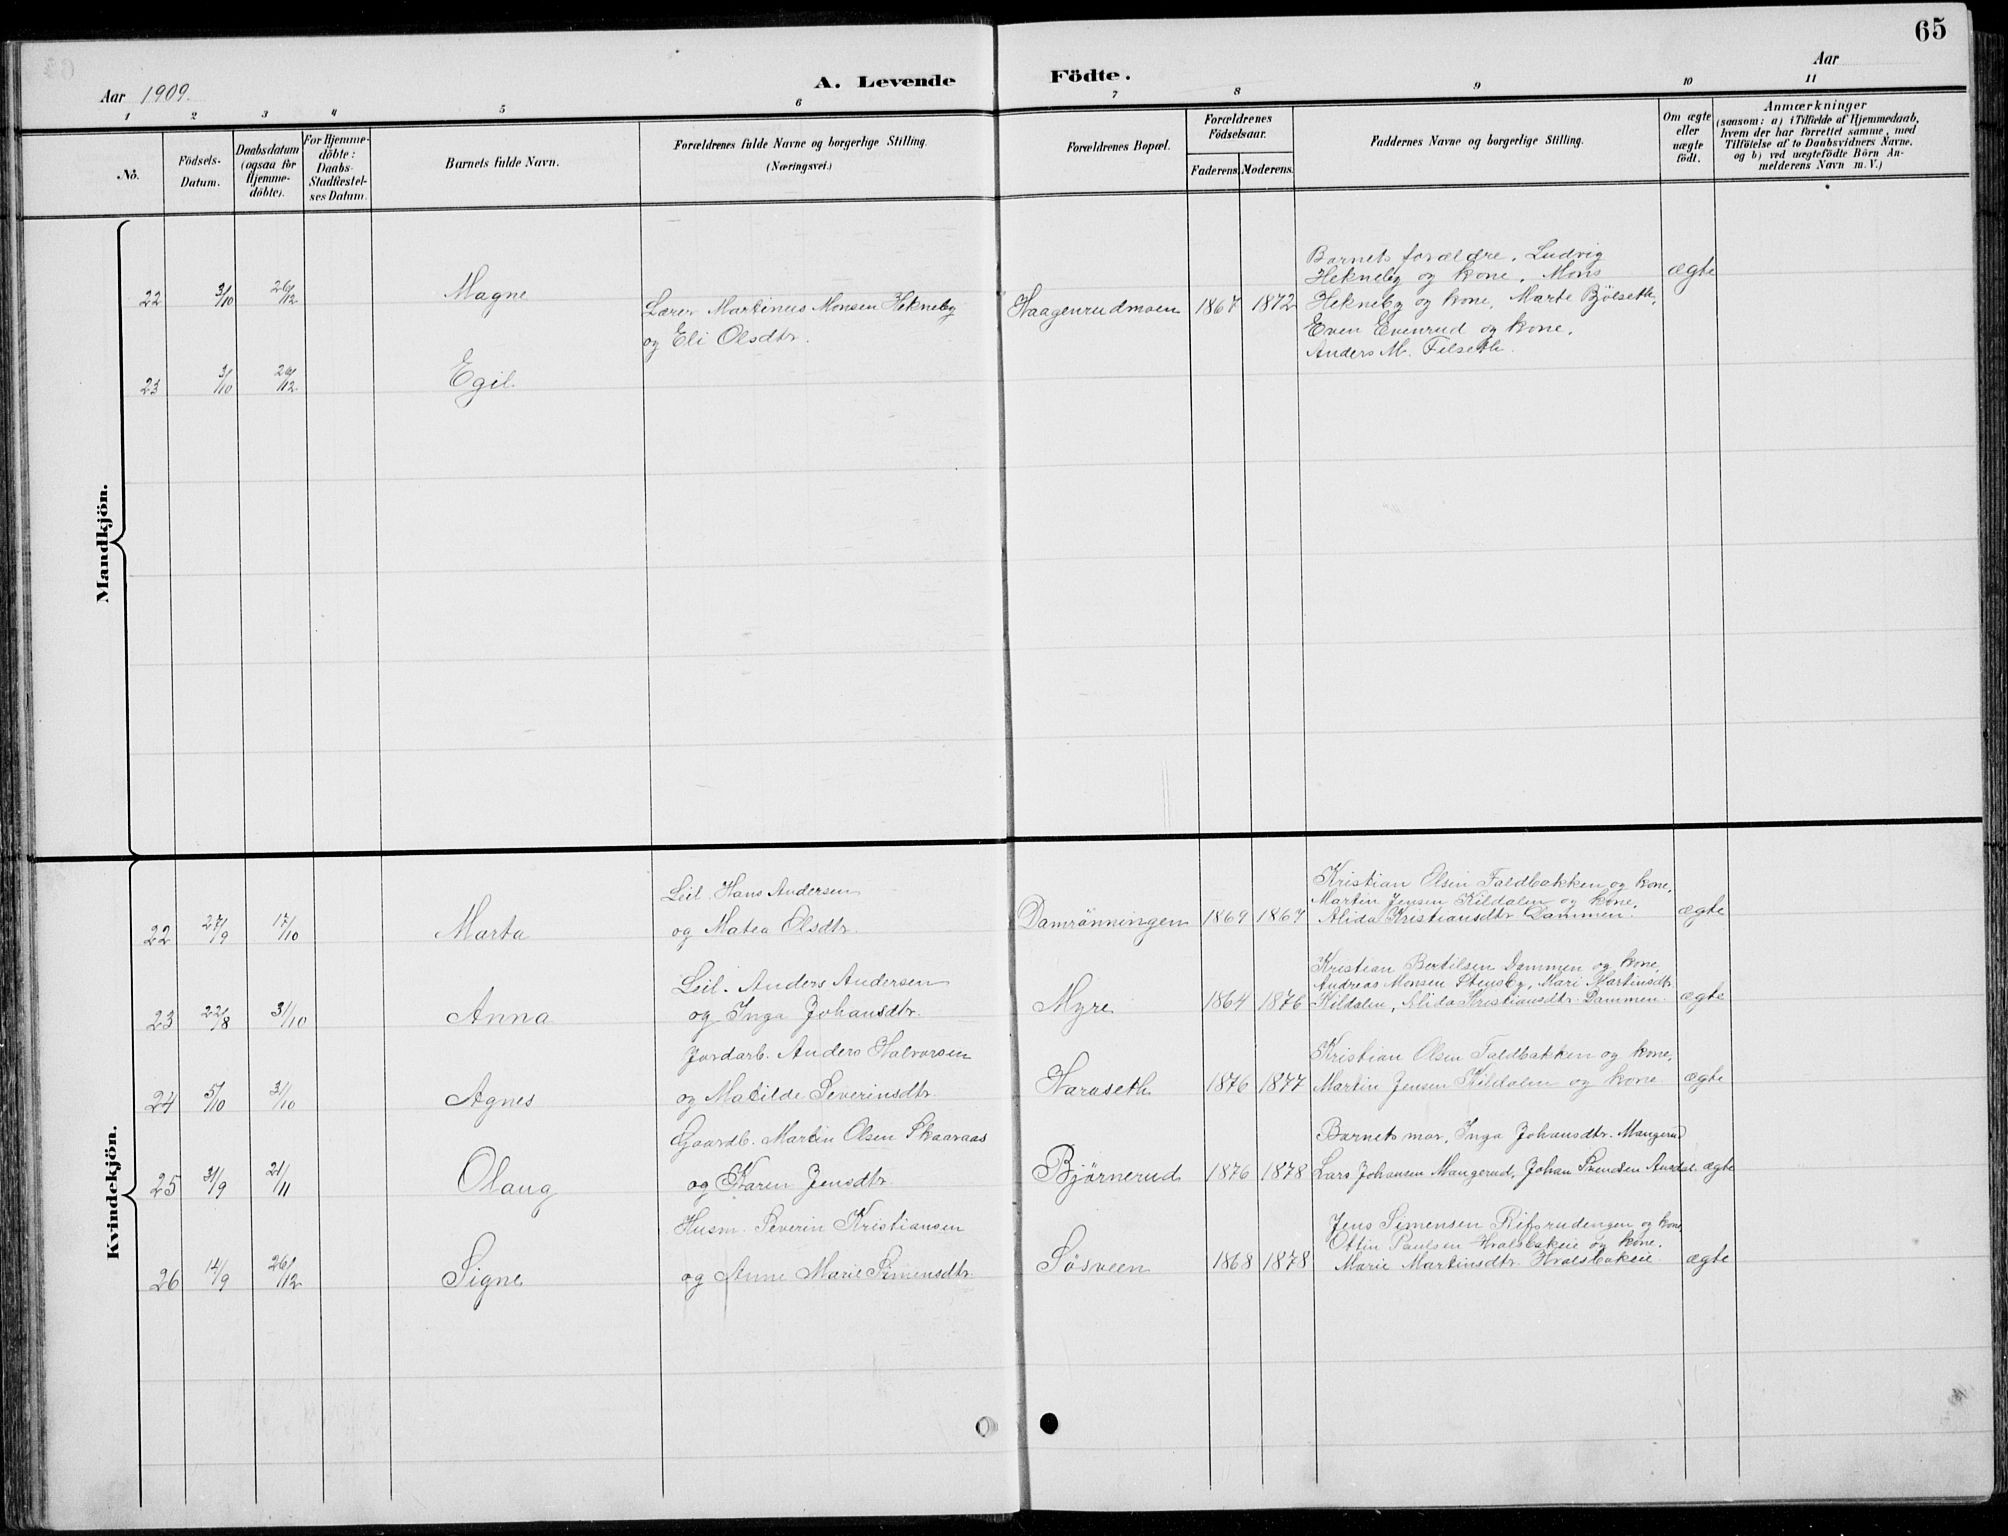 65
Aar 1909.
A. Levende Födte.
Aar
1 2 3 4 5 6 7 8 9 10 11
No.
Födsels-Datum.
Daabsdatum (ogsaa for Hjemme-döbte).
For Hjemme-döbte: Daabs-Stadfæstel-ses Datum.
Barnets fulde Navn.
Forældrenes fulde Navne og borgerlige Stilling.
(Næringsvei.)
Forældrenes Bopæl.
Forældrenes Födselsaar.
Faderens. Moderens.
Faddernes Navne og borgerlige Stilling.
Om ægte eller uægte födt.
Anmærkninger
(saasom: a) i Tilfælde af Hjemmedaab,
hvem der har forrettet samme, med
Tilföielse af to Daabsvidners Navne.
og b) ved uægtefödte Börn An-
melderens Navn m. V.)
Mandkjön.
Barnets forældre, Ludvig
Hekneby og kone, Mons
22 3/10 26/12 Magne Lærer Martinus Monsen Hekneby Haagenrudmoen 1867 1872 Hekneby og kone, Marte Bjölseth, ægte
og Eli Olsdtr. Even Evenrud og kone,
Anders M. Filseth.
23 3/10 26/12 Egil
Kvindekjön.
Leil. Hans Andersen Kristian Olsen Faldbakken og kone,
Martin Jensen Kildalen og kone,
22 27/9 17/10 Marta og Matea Olsdtr. Damrönningen 1869 1867 Alida Kristiansdtr Dammen. ægte
Leil. Anders Andersen Kristian Bertilsen Dammen og kone,
Andreas Monsen Stensby, Mari Martinsdtr
23 22/8 31/10 Anna og Inga Johansdtr. Myre 1864 1876 Kildalen, Alida Kristiansdtr. Dammen. ægte
Jordarb. Anders Halvorsen Kristian Olsen Faldbakken og kone,
24 5/10 31/10 Agnes og Matilde Severinsdtr. Haraseth 1876 1877 Martin Jensen Kildalen og kone ægte
Gaardb. Martin Olsen Skaaraas Barnets mor, Inga Johansdtr. Mangerud
25 3/9 21/11 Olaug og Karen Jensdtr. Bjørnerud 1876 1878 Lars Johansen Mangerud, Johan Svendsen ægte
Husm. Severin Kristiansen Jens Simensen og kone
Ottin Paulsen og kone.
26 14/9 26/12 Signe og Anne Marie Simensdtr. Søsveen 1868 1878 Marie Martinsdtr. ægte